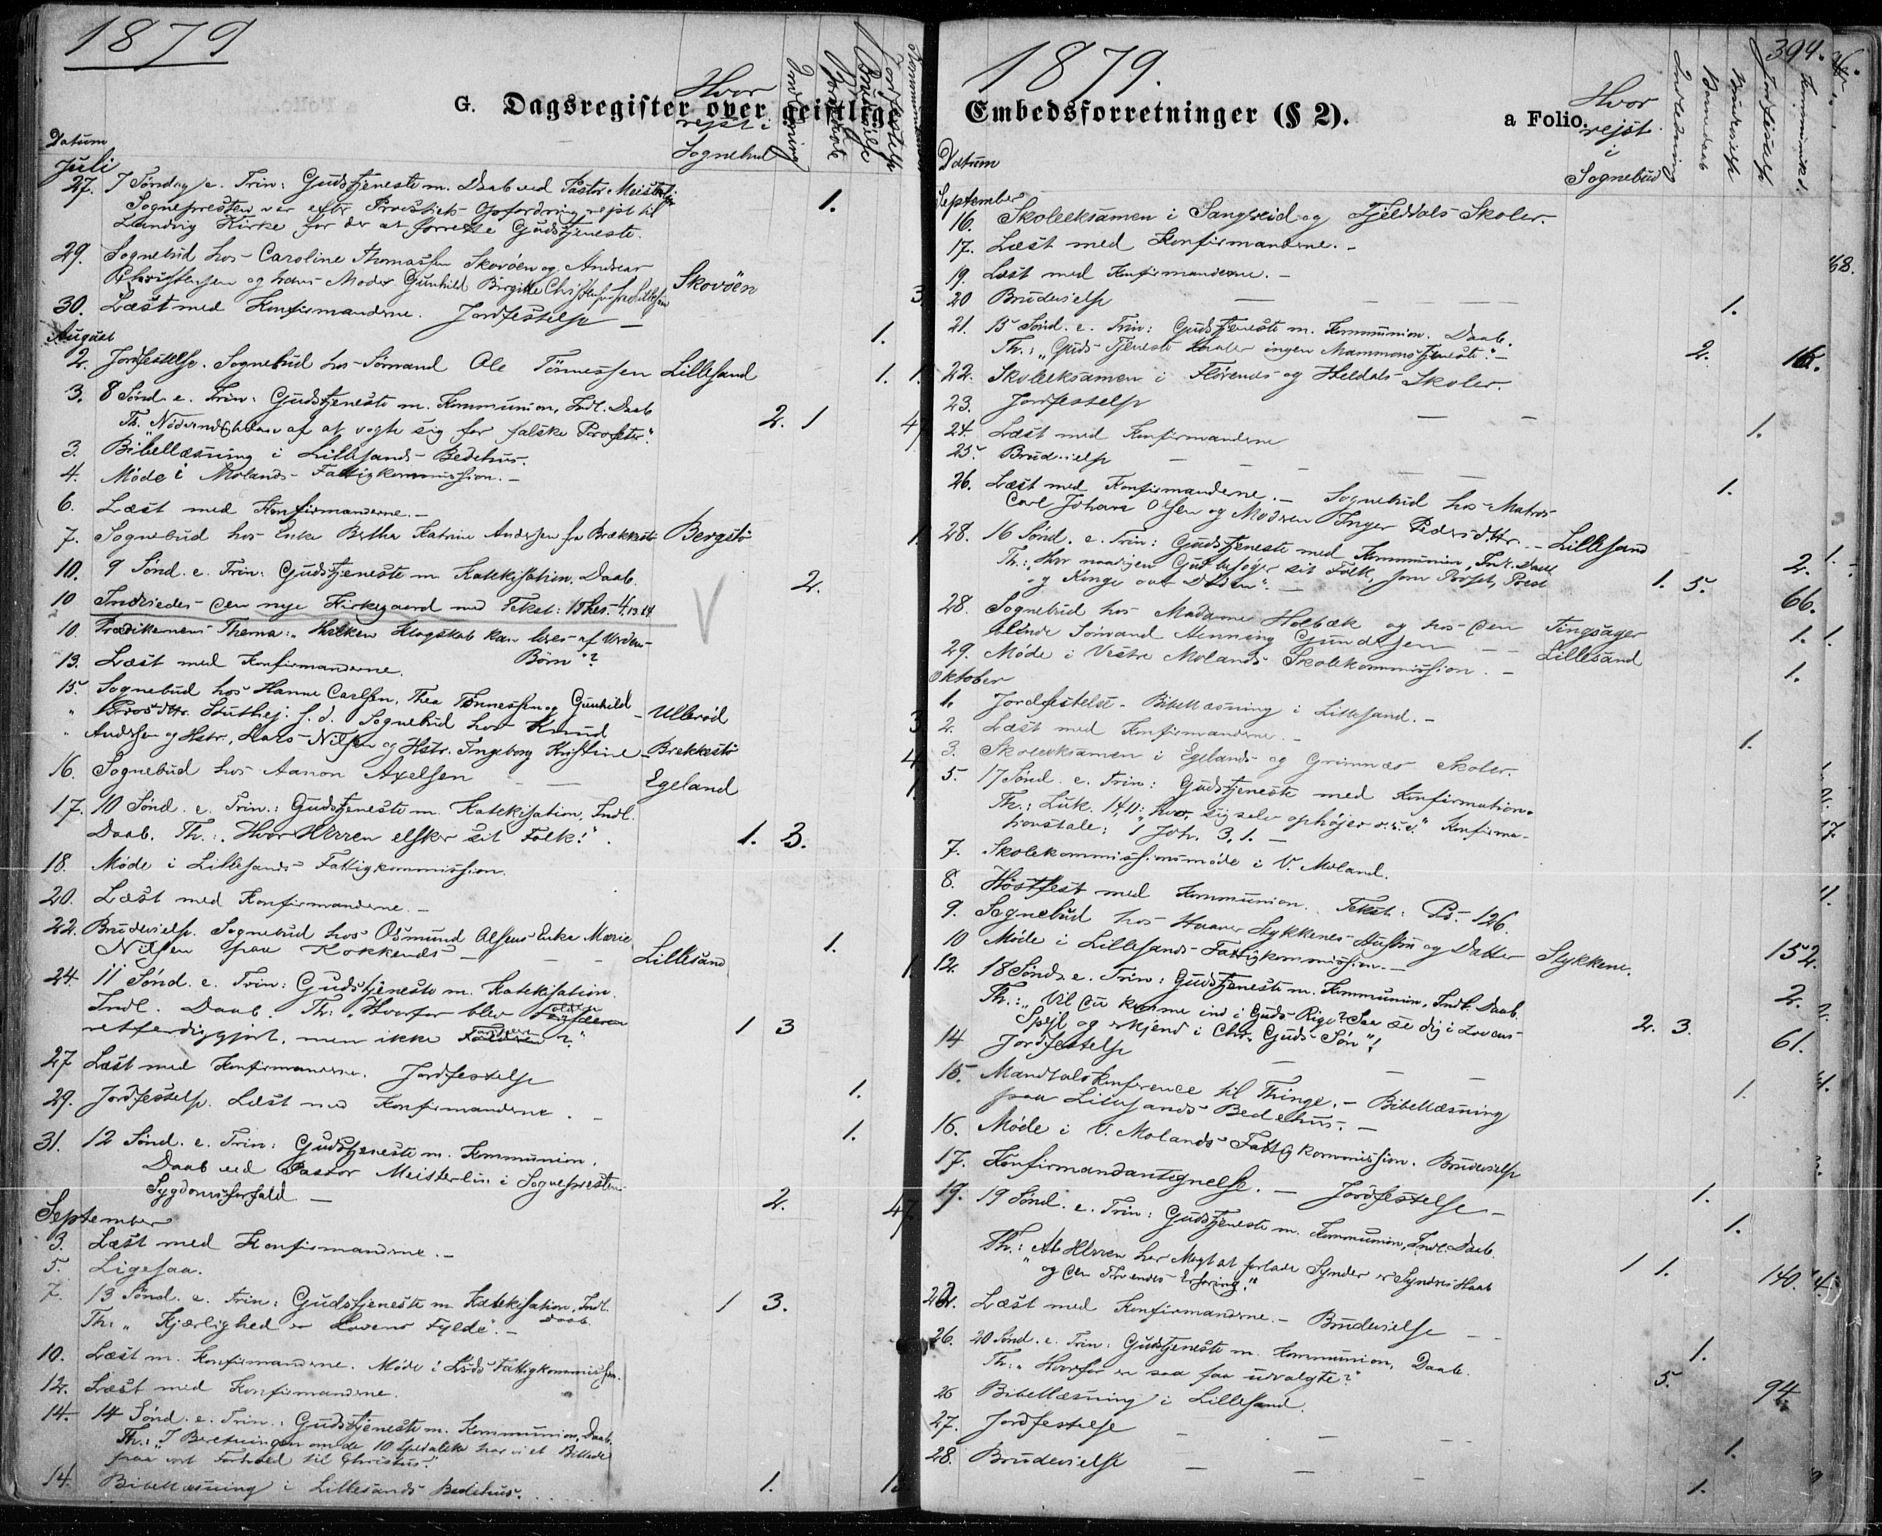 1879
G. Dagsregister over geistlige
Datum
Hvor
rejst i
Sognebud
Indledning
Barnedaab
Brudevielse
Jordfestelse
Juli
27. 7 Søndag e. Trin: Gudstjeneste m. Daab ved Pastor Meisterlin 1.
Sognepresten var efter Provstiets Opfordring rejst til
Landvig Kirke for der at forrette Gudstjeneste.
29. Sognebud hos Caroline Thomassen Skovøen og Andreas
Christensen og hans Moder Gunhild Birgitte Skovøen 3
30. Læst med Konfirmanderne. Jordfestelse — 1.
August
2. Jordfestelse. Sognebud hos Sømand Ole Tønnessen Lillesand 1. 1.
3. 8 Sønd. e. Trin: Gudstjeneste m. Kommunion, Indl. Daab
Th. "Nødvendigheden af at vogte sig for falske Profeter". 2. 1
3. Bibellæsning i Lillesands Bedehus.
4. Møde i Molands Fattigkommission. -
6. Læst med Konfirmanderne. -
7. Sognebud hos Enke Berthe Katrine Andersen fra Brækkestø Bergstø 1
10. 9 Sønd. e. Trin: Gudstjeneste m. Katekisation, Daab. 2.
10 Indviedes den nye Kirkegaard med Tekst: 1 Thes. 4, 13, 14
10. Prædikenens Thema: "Hvilken Klogskab kan læres af Verdens
Børn"?
13. Læst med Konfirmanderne.
15. Sognebud hos Hanne Carlsen, Thea Tønnessen og Gunhild Ullerød 3
" Sognebud hos Knud
" Andersen og Hstr., Lars Nilsen og Hstr. Ingeborg Kristine - Brekkestø 4
16. Sognebud hos Aanon Axelsen — — Egeland 1.
17. 10 Sønd. e. Trin.: Gudstjeneste m. Katekisation, Indl.
Daab. Th.: "Hvor Herren elsker sit Folk!". 1. 3.
18. Møde i Lillesands Fattigkommission.
20. Læst med Konfirmanderne. -
22. Brudevielse. Sognebud hos Osmund Olsens Enke Marie
Nilsen paa Kokkenes — Lillesand 1. 1
24. 11 Sønd. e. Trin: Gudstjeneste m. Katekisation.
Indl. Daab. Th: "Hvorfor blev Tolderen
retfærdiggjort, men ikke Farisæeren?" 1 3
27 Læst med Konfirmanderne. Jordfestelse 1.
29. Jordfestelse. Læst med Konfirmanderne. - 1.
31. 12 Sønd. e. Trin: Gudstjeneste m. Kommunion,
Daab ved Pastor Meisterlin i Sogneprestens
Sygdomsforfald — 2. 47.
September
3. Læst med Konfirmanderne. -
5. Ligesaa.
7. 13 Sønd. e. Trin: Gudstjeneste m. Katekisation, Indl. Daab 1 3.
Th: "Kjærlighed er Lovens Fylde". -
10. Læst m. Konfirmanderne. Møde i Lsds Fattigkommission.
12. Læst med Konfirmanderne.
14. 14 Sønd. e. Trin.: Gudstjeneste m. Kommunion, Daab.
Th.: "I Beretningen om de 10 Spedalske har vi et Billede
paa vort Forhold til Christus". 1.
14. Bibellæsning i Lillesands Bedehus.
1879.
394.
Embedsforretninger (§ 2).
a Folio.
Datum
Hvor
rejst
i
Sognebud
Indledning
Barnedaab
Brudevielse
Jordfestelse
September
16. Skoleeksamen i Sangereid og Fjeldals Skoler.
17. Læst med Konfirmanderne. -
19. Læst med Konfirmanderne. -
20 Brudevielse — — — 1.
21. 15 Sønd. e. Trin: Gudstjeneste m. Kommunion. Daab.
Th.: "Guds Tjeneste taaler ingen Mammonstjeneste". - 2. 16.
22. Skoleeksamen i Florenes og Heldals Skoler.
23. Jordfestelse — — 1.
24. Læst med Konfirmanderne
25. Brudevielse — — — 1.
26. Læst med Konfirmanderne. - Sognebud hos Matros
Carl Johan Olsen og Moderen Inger Pedersdtr. - Lillesand 2. 1.
28. 16 Sønd. e. Trin: Gudstjeneste med Kommunion, Ind. Daab
Th.: Hvor naadigen Gud besøger sit Folk, som Profet, Prest
og Konge over Døden". - 1. 5. 66.
28. Sognebud hos Madame Holbæk og hos den Tingsager 1. 1.
blinde Sømand Henning Gundersen - - Lillesand 1.
29. Møde i Vestre Molands Skolekommission. -
Oktober
1. Jordfestelse - Bibellæsning i Lillesand. - 1.
2. Læst med Konfirmanderne. -
3. Skoleeksamen i Egelands og Grimnæs Skoler.
5. 17 Sønd. e. Trin: Gudstjeneste med Konfirmation.
Th.: Luk. 14,11: "Hvo sig selv ophøjer o.s.v." Konfirma-
tionstale: 1 Joh. 3, 1. -
7. Skolekommissionsmøde i V. Moland.
8. Høstfest med Kommunion. Tekst: Ps. 126.
9. Sognebud hos Haaver Stykkenes Hustru og Datter Stykkene. 2.
10 Møde i Lillesands Fattigkommission. -
12. 18 Sønd. e. Trin: Gudstjeneste m. Kommunion, Indl. Daab.
Th.: "Vil du komme ind i Guds Rige? Saa se dig i Lovens
Spejl og erkjend i Chr. Guds Søn"! 2. 3. 61.
14 Jordfestelse — — — 1.
15. Mandtalskonference til Thinge. - Bibellæsning
paa Lillesands Bedehus. -
16. Møde i V. Molands Fattigkommission. Brudevielse 1.
17. Konfirmandantegnelse. - Jordfestelse - 1.
19. 19 Sønd. e. Trin: Gudstjeneste m. Kommunion, Indl. Daab.
Th.: "At Herren har Magt at forlade Synder er Synderes Haab
og den Troendes Erfaring." 1 1. 140.
22. Læst med Konfirmanderne. - Brudevielse - - 1.
26. 20 Sønd. e. Trin: Gudstjeneste m. Kommunion, Daab.
Th: "Hvorfor er saa faa udvalgte?" 5. 94.
26 Bibellæsning i Lillesand.
27. Jordfestelse — — — 1.
28. Brudevielse — — — 1.